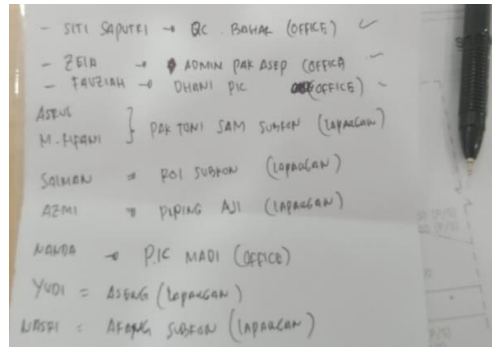 - SITI SAPUTRI → QC. BAHAR (OFFICE)
- ZELA → ADMIN PAK ASEP (OFFICE)
- FAUZIAH → DHANI PIC (OFFICE)
ASEUS
M. HFANI } PAK TONI SAM SUBKON (LAPANGAN)
SALMAN = ROI SUBKON (LAPANGAN)
AZMI = PIPING AJI (LAPANGAN)
NANDA → PIC MADI (OFFICE)
YUDI = ASENG (LAPANGAN)
= AKANG SUBKON (LAPANGAN)